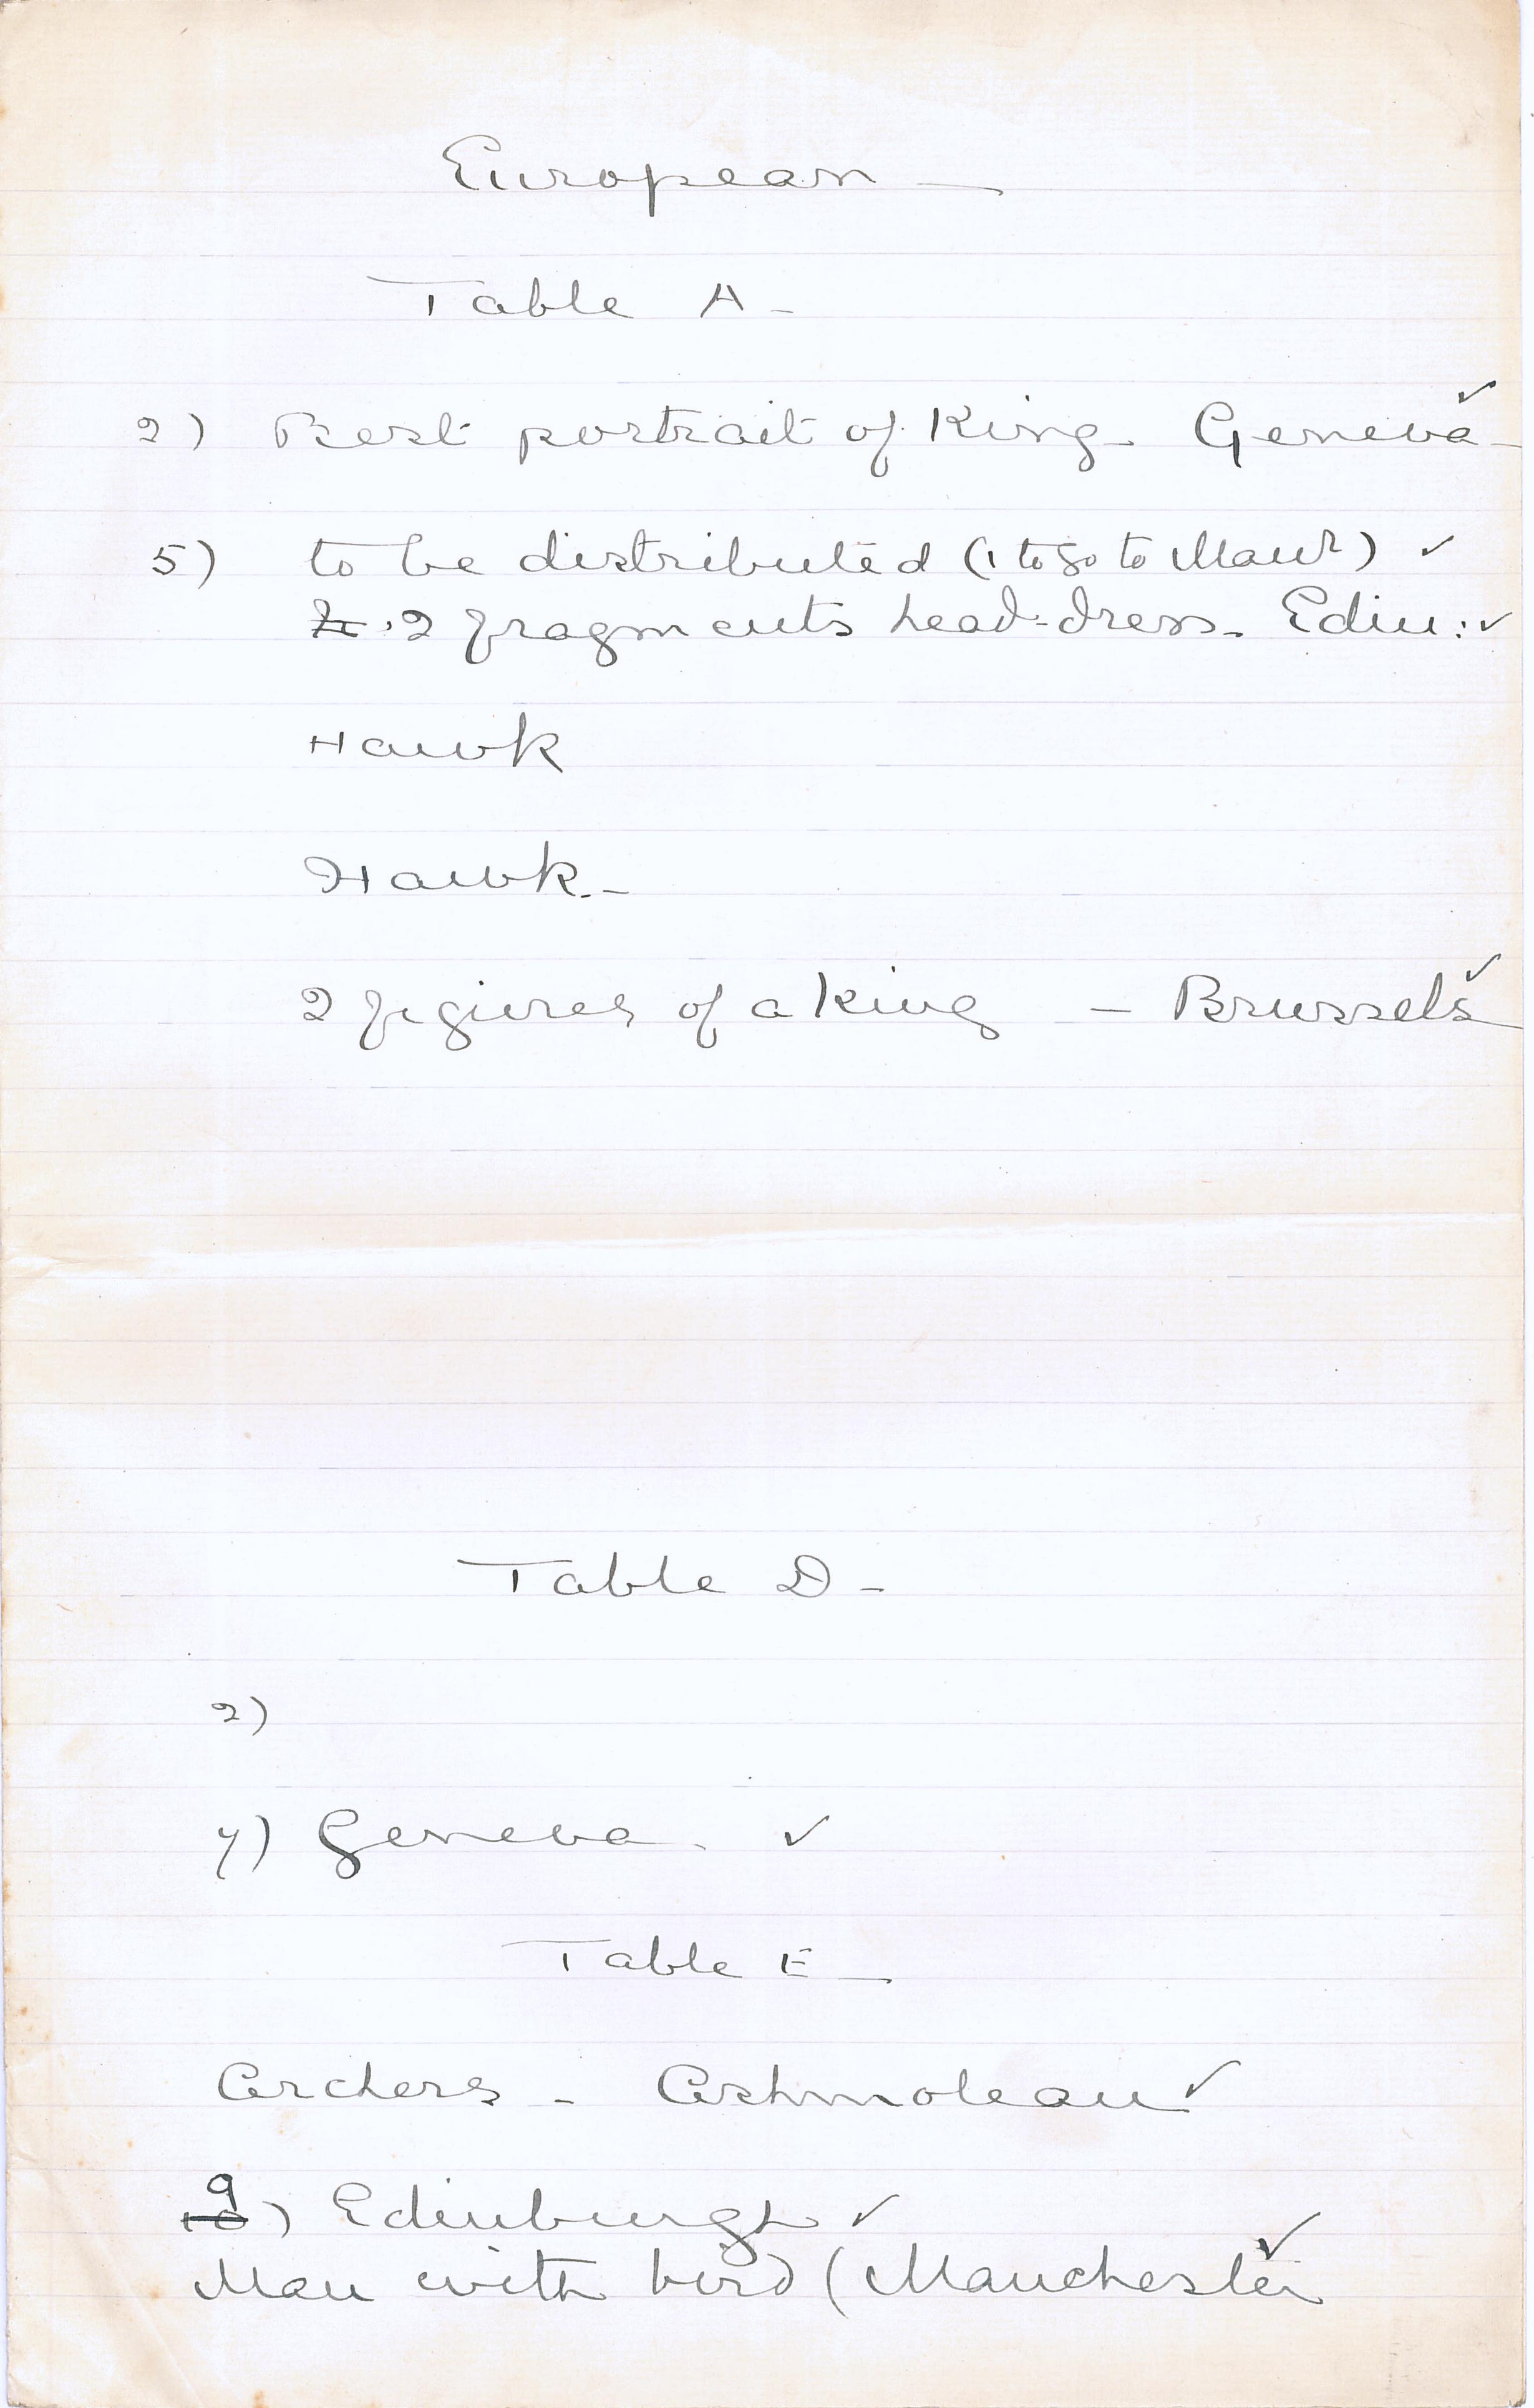 European —
Table A —
2) Best portrait of King — Geneva ✓ —
5) to be distributed (1 to go to Manr) ✓
2 fragments head-dress — Edin: ✓
Hawk
Hawk —
2 figures of a king — Brussels ✓
Table D —
2)
7) Geneva. ✓
Table E —
Archers — Ashmolean ✓
9
10) Edinburgh ✓
Man with bird (Manchester ✓